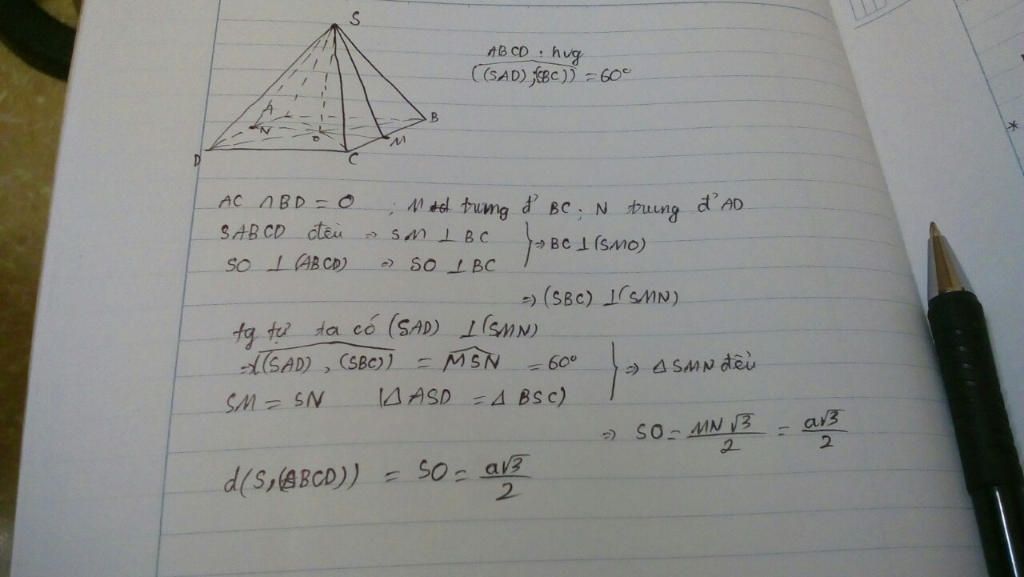 S
ABCD . hvg
((SAD);(SBC)) = 60°
A
B
N
O
M
D
C
AC ∩ BD = O ; M trung đ' BC ; N trung đ' AD
SABCD đều ⇒ SM ⊥ BC
SO ⊥ (ABCD) ⇒ SO ⊥ BC
⇒ BC ⊥ (SMO)
⇒ (SBC) ⊥ (SMN)
tg tự ta có (SAD) ⊥ (SMN)
⇒ ((SAD), (SBC)) = MSN = 60°
SM = SN (Δ ASD = Δ BSC)
⇒ Δ SMN đều
⇒ SO = MN√3/2 = a√3/2
d(S,(ABCD)) = SO = a√3/2
*